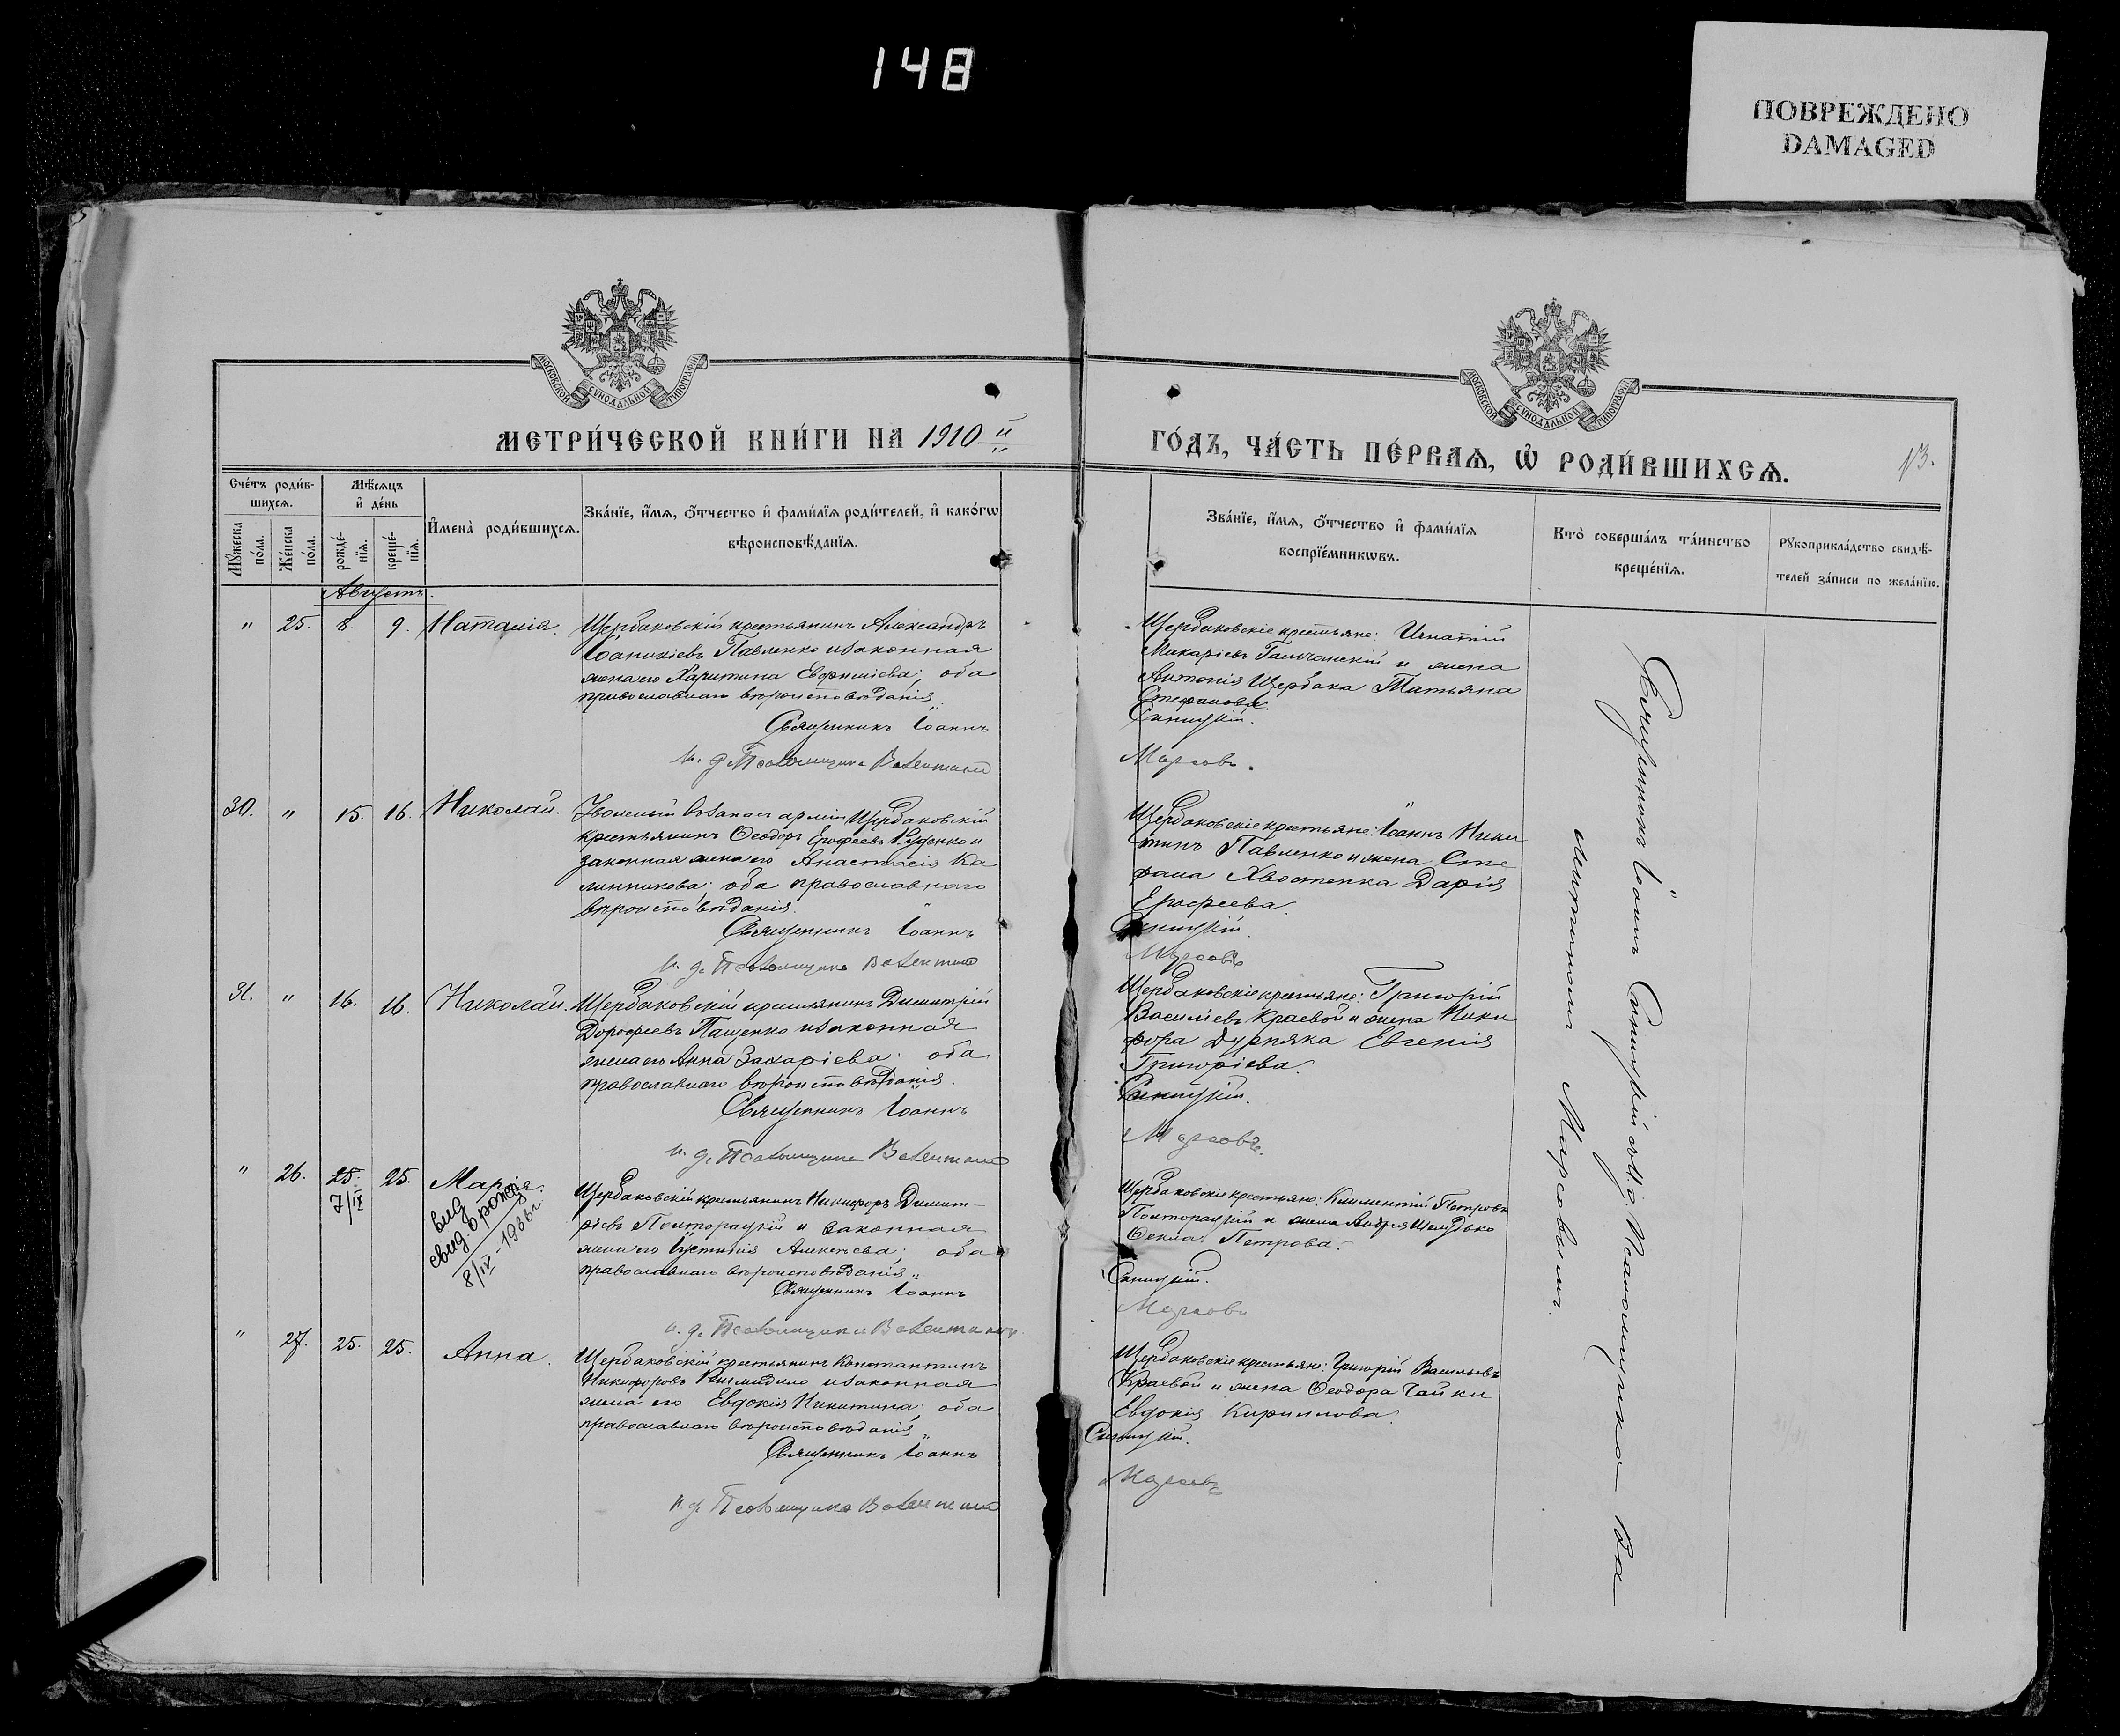 148
ПОВРЕЖДЕНО
DAMAGED
МОСКОВСКОЙ СѴНОДАЛЬНОЙ ТИПОГРАФІИ
МОСКОВСКОЙ СѴНОДАЛЬНОЙ ТИПОГРАФІИ
МЕТРИ́ЧЕСКОЙ КНИ́ГИ НА 1910 й
ГО́ДЪ, ЧА́СТЬ ПЕ́РВАѦ, Ѡ҆ РОДИ́ВШИХСѦ.
13.
Сче́тъ роди́в-
шихсѧ.
Мѣ́сѧцъ
и҆ де́нь
Мꙋ́жеска
по́ла.
Же́нска
по́ла.
рожде́-
нїѧ.
креще́-
нїѧ.
И҆мена̀ роди́вшихсѧ.
Зва́нїе, и҆́мѧ, ѻ҆́тчество и҆ фами́лїѧ роди́телей, и҆ како́гѡ
вѣроисповѣ́данїѧ.
Зва́нїе, и҆́мѧ, ѻ҆́тчество и҆ фами́лїѧ
воспрїе́мникѡвъ.
Кто̀ соверша́лъ та́инство
креще́нїѧ.
Рꙋкоприкла́дство свидѣ́-
телей за́писи по жела́нїю.
Августъ.
" 25. 8. 9. Наталія.
Щербаковскій крестьянинъ Александръ
Іоанникіевъ Павленко и законная
жена его Харитина Евфиміева; оба
православнаго вѣроисповѣданія.
Священникъ Іоаннъ
и. д. Псаломщика Валентинъ
Щербаковскіе крестьяне: Игнатій
Макаріевъ Гальчанскій и жена
Антонія Щербака Татьяна
Стефанова.
Синицкій.
Марсовъ.
30. " 15. 16. Николай.
Уволеный въ запас арміи Щербаковскій
крестьянинъ Ѳеодоръ Ерофеевъ Руденко и
законная жена его Анастасія Ка
линникова; оба православнаго
вѣроисповѣданія.
Священникъ Іоаннъ
и. д. Псаломщика Валентинъ
Щербаковскіе крестьяне: Іоаннъ Ники
тинъ Павленко и жена Сте
фана Хвостенка Дарія
Ерофеева.
Синицкій.
Марсовъ
31. " 16. 16. Николай.
Щербаковскій крестьянинъ Димитрій
Дорофеевъ Пащенко и законная
жена его Анна Захаріева; оба
православнаго вѣроисповѣданія.
Священникъ Іоаннъ
и. д. Псаломщика Валентинъ
Щербаковскіе крестьяне: Григорій
Васильевъ Краевой и жена Ники
фора Дурняка Евгенія
Григоріева.
Синицкій.
Марсовъ.
" 26. 25. 25. Марія.
7/IX
вид
свид. о рожд
8/IV-1936г
Щербаковскій крестьянинъ Никифоръ Димит-
ріевъ Полторацкій и законная
жена его Іустинія Алексѣева; оба
православнаго вѣроисповѣданія.
Священникъ Іоаннъ
и. д. Псаломщика Валентинъ
Щербаковскіе крестьяне: Климентій Петровъ
Полторацкій и жена Андрея Шелудько
Ѳекла Петрова.
Синицкій.
Марсовъ
" 27. 25. 25. Анна.
Щербаковскій крестьянинъ Константинъ
Никифоровъ и законная
жена его Евдокія Никитина; оба
православнаго вѣроисповѣданія.
Священникъ Іоаннъ
и. д. Псаломщика Валентинъ
Щербаковскіе крестьяне: Григорій Васильевъ
Краевой и жена Ѳеодора Чайки
Евдокія Кириллова.
Синицкій.
Марсовъ
Священникъ Іоаннъ Синицкій съ и. д. Псаломщика Ва
лентиномъ Марсовымъ.